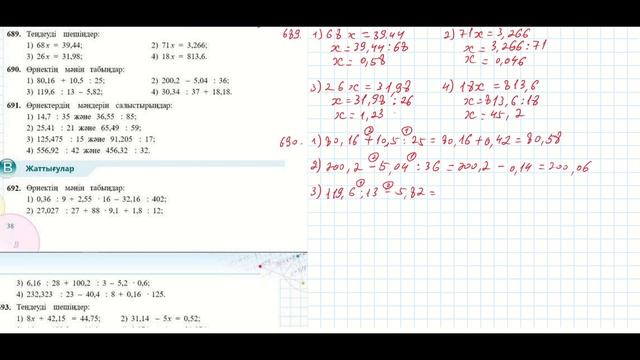 689. Теңдеуді шешіңдер:
1) 68x = 39,44; 2) 71x = 3,266;
3) 26x = 31,98; 4) 18x = 813,6.
690. Өрнектің мәнін табыңдар:
1) 80,16 + 10,5 : 25; 2) 200,2 – 5,04 : 36;
3) 119,6 : 13 – 5,82; 4) 30,34 : 37 + 18,18.
691. Өрнектердің мәндерін салыстырыңдар:
1) 14,7 : 35 және 36,55 : 85;
2) 25,41 : 21 және 65,49 : 59;
3) 125,475 : 15 және 91,205 : 17;
4) 556,92 : 42 және 456,32 : 32.
B Жаттығулар
692. Өрнектің мәнін табыңдар:
1) 0,36 : 9 + 2,55 · 16 – 32,16 : 402;
2) 27,027 : 27 + 88 · 9,1 + 1,8 : 12;
38
B
3) 6,16 : 28 + 100,2 : 3 – 5,2 · 0,6;
4) 232,323 : 23 – 40,4 : 8 + 0,16 · 125.
693. Теңдеуді шешіңдер:
1) 8x + 42,15 = 44,75; 2) 31,14 – 5x = 0,52;
689 1) 68x = 39,44 2) 71x = 3,266
x = 39,44 : 68 x = 3,266 : 71
x = 0,58 x = 0,046
3) 26x = 31,98 4) 18x = 813,6
x = 31,98 : 26 x = 813,6 : 18
x = 1,23 x = 45,2
690. 1) 80,16 + 10,5 : 25 = 80,16 + 0,42 = 80,58
2) 200,2 – 5,04 : 36 = 200,2 – 0,14 = 200,06
3) 119,6 : 13 – 5,82 =